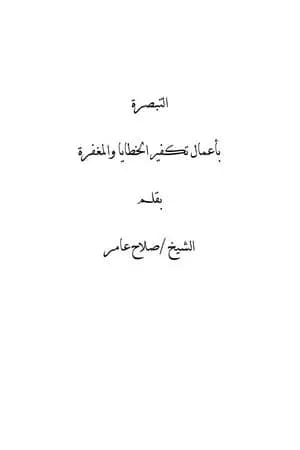 التبصرة
بأعمال تكفير الخطايا والمغفرة
بقلم
الشيخ / صلاح عامر